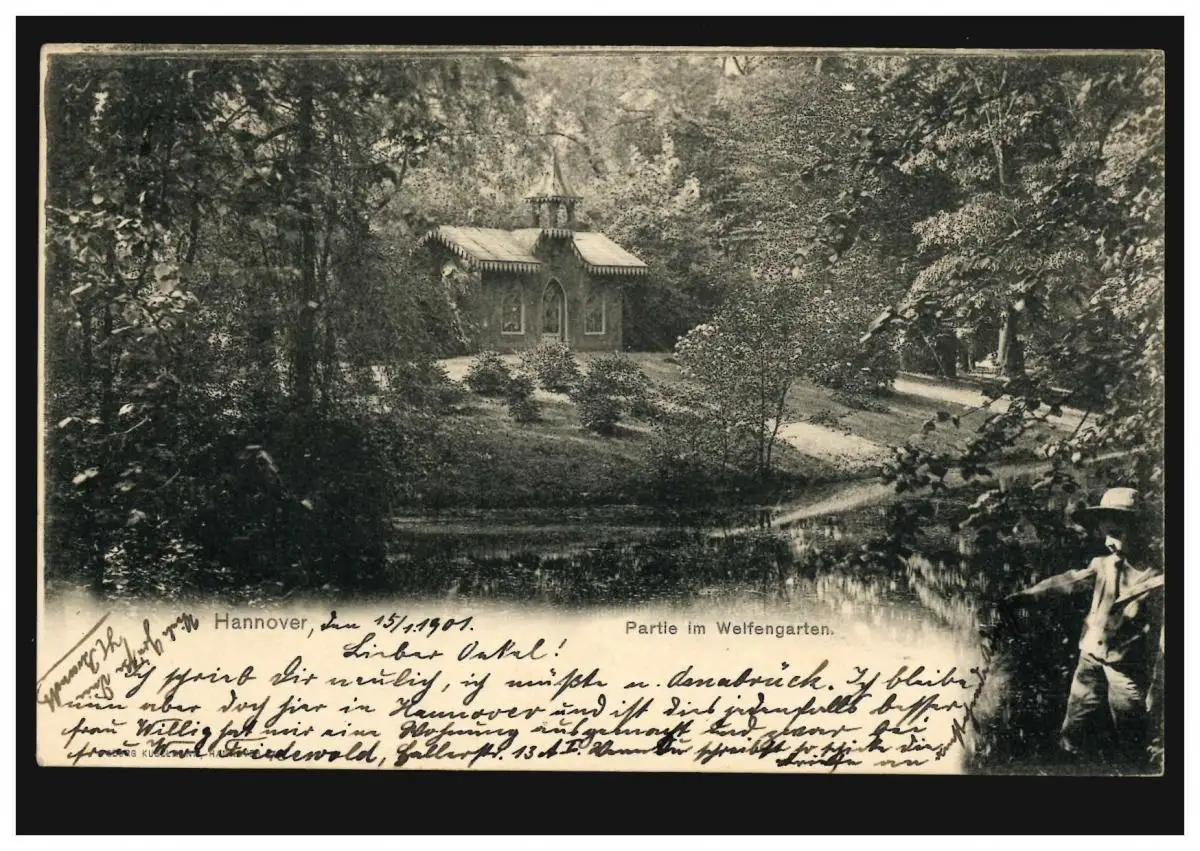 Hannover, den 15/1.1901.
Partie im Welfengarten.
Lieber Onkel!
Ich schrieb Dir neulich, ich müßte n. Osnabrück. Ich bleibe
nun aber doch hier in Hannover und ist dies jedenfalls besser
frau Willig hat mir eine Wohnung ausgemacht und zwar bei
frau Friedewold, Hallerstr. 13 A I. Wenn Du schreibst so schicke die
Briefe an